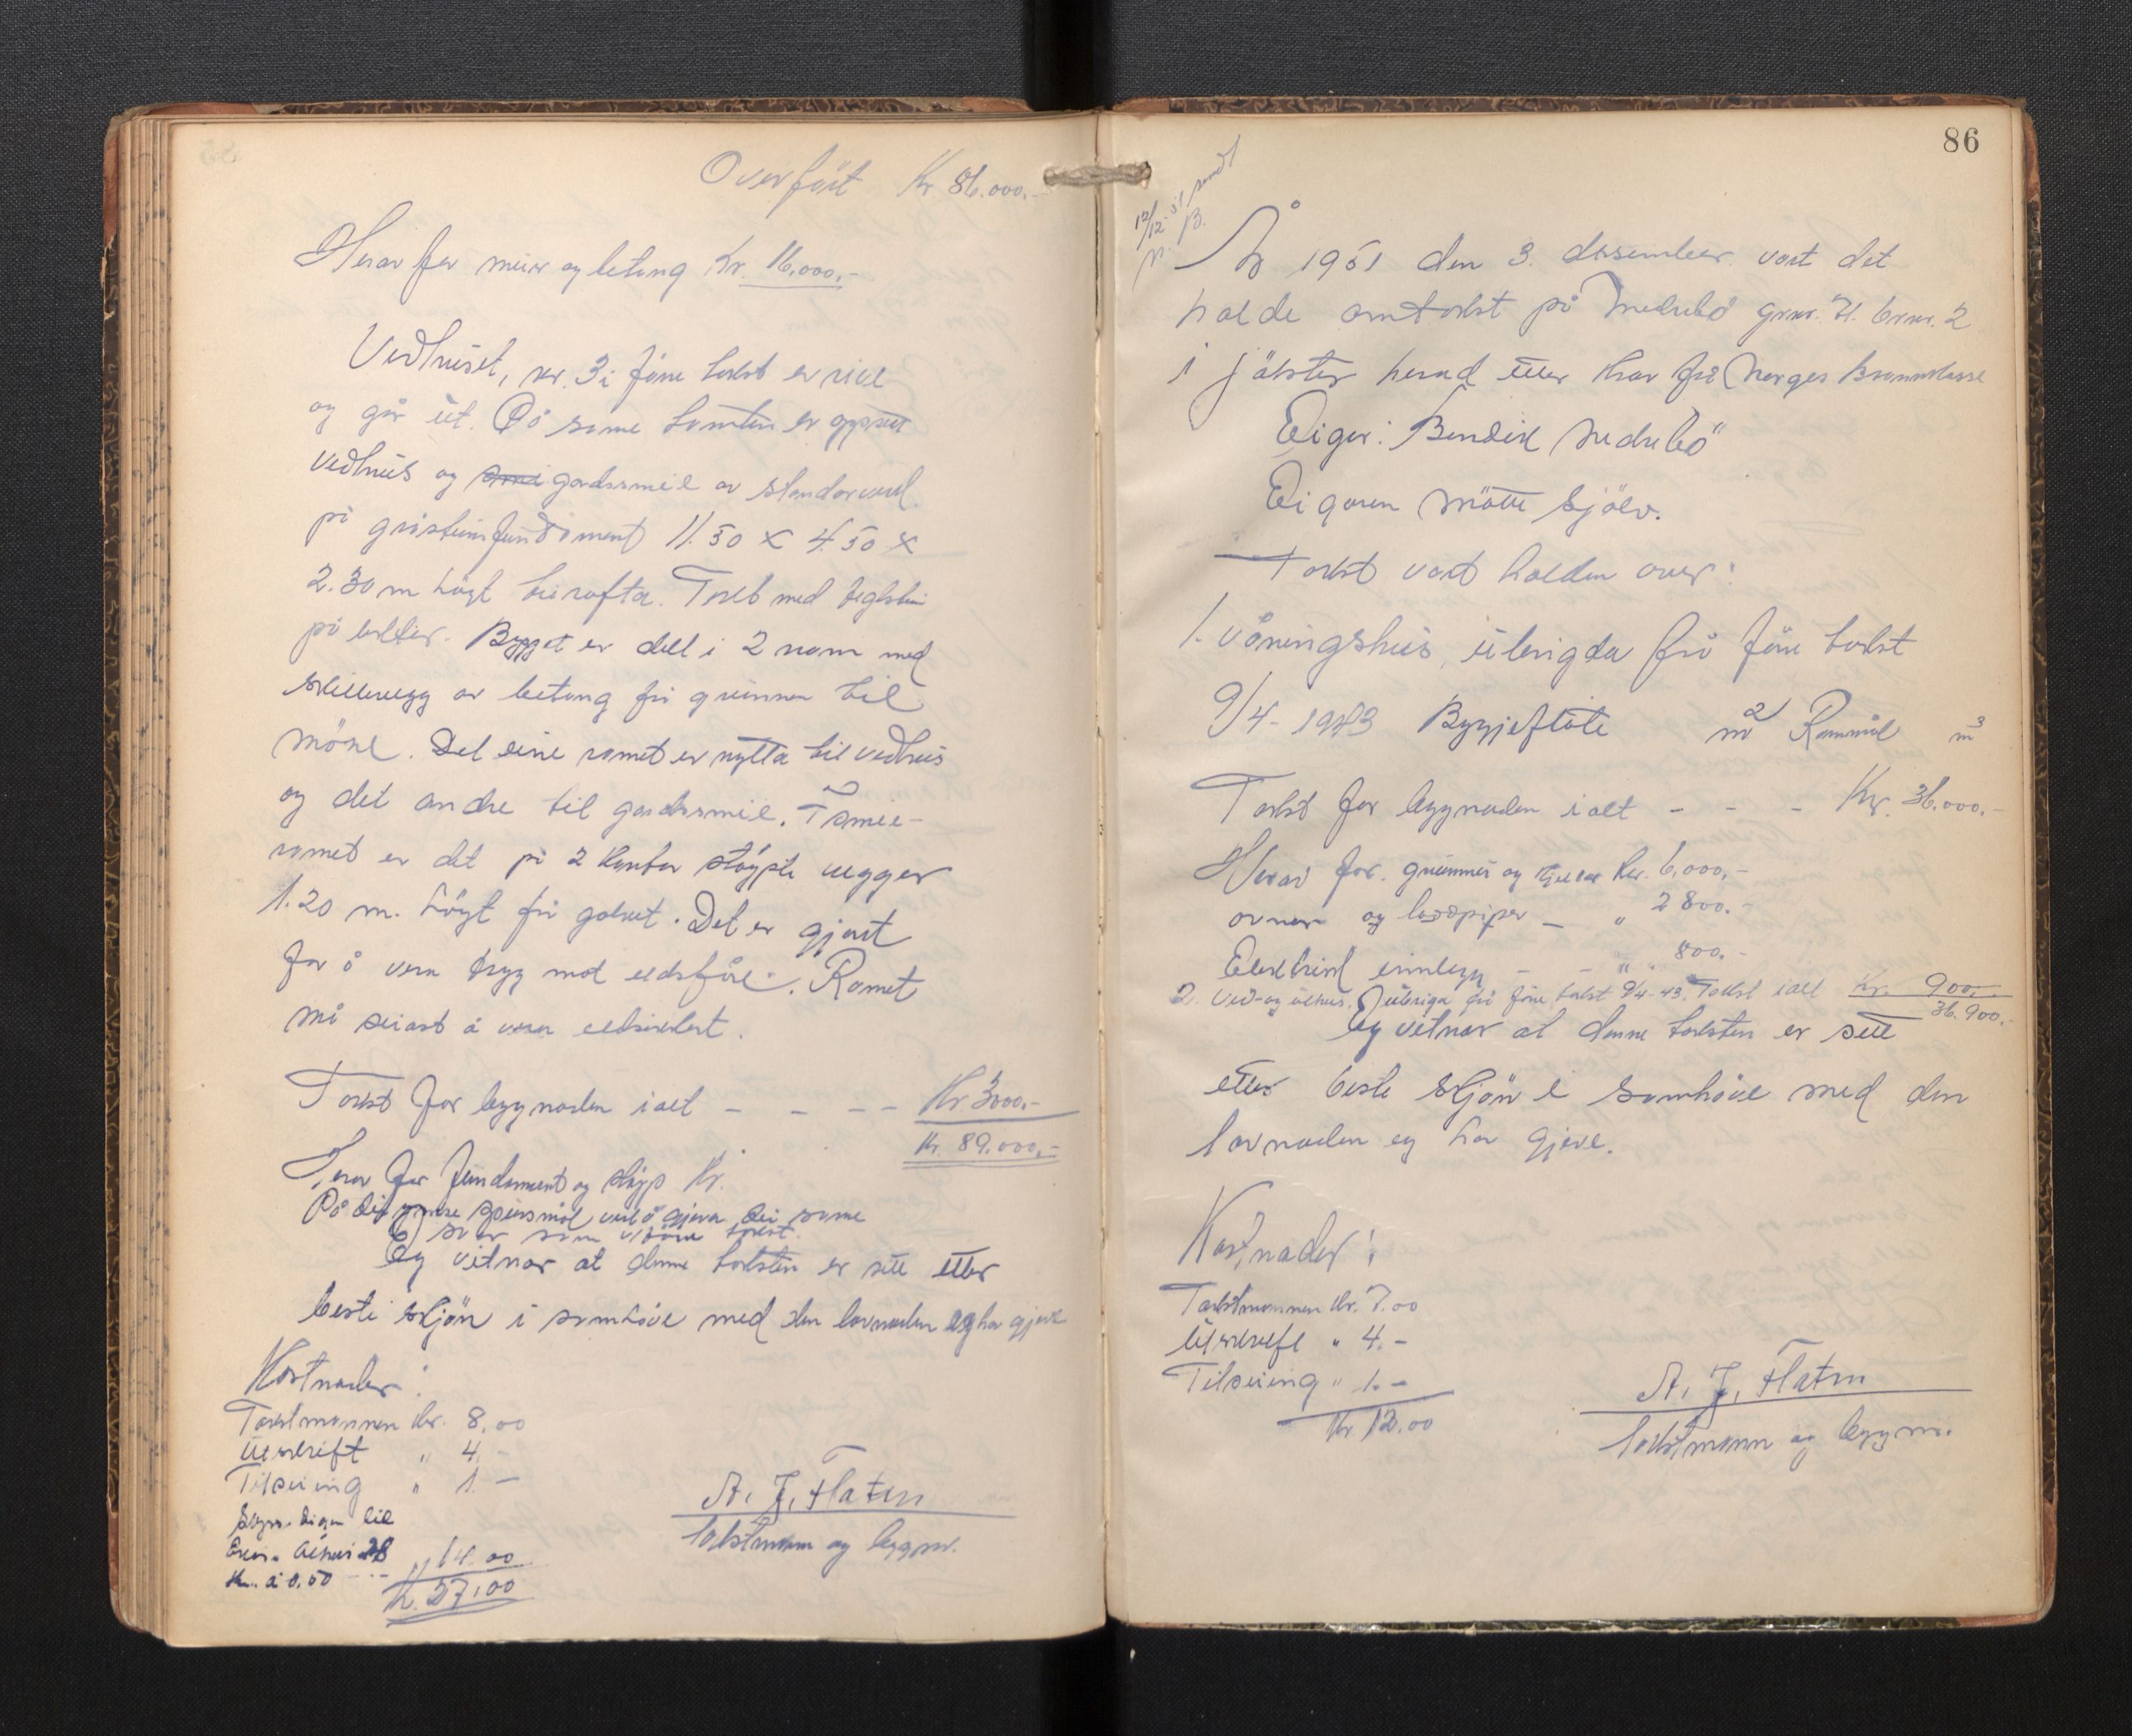 Overfört Kr 86.000.-
Herav for mur og betong Kr. 16.000.-
Vedhuset, nr. 3 i före takst er rive
og går ut. På same tomten er oppsett
vedhus og smi gardssmie av standarverk
på gråsteinsfundament 11.50 x 4.50 x
2.30 m högt til rafta. Tekt med teglstein
på lekter. Bygget er delt i 2 rom med
skillevegg av betong frå grunnen til
möne. Det eine romet er nytta til vedhus
og det andre til gardssmie. I smie-
romet er det på 2 kantar stöypte vegger
1.20 m. högt frå golvet. Det er gjort
for å vera trygg mot eldsfåre. Romet
må seiast å vera eldsikkert.
Takst for bygnaden i alt - - - - Kr 3000.-
Kr. 89.000.-
Herav for fundament og stöyp Kr.
På dei ymse spursmål vert å gjeva dei same
svar som ved före takst.
Eg vitnar at denne taksten er sett etter
beste skjön i samhöve med den lovnaden eg har gjeve
Kostnader:
Takstmannen kr. 8,00
Utskrift " 4.-
Tilseiing " 1.-
Skyss. Eigen bil
28
km. à 0.50 - - " 14.00
Kr. 27.00
A. J. Flaten
takstmann og byggm.
86
12/12-51 sendt
N. B.
År 1951 den 3. desember vart det
halde omtakst på Nedrebö grnr. 71. brnr. 2
i Jölster herad etter krav frå Norges Brannkasse
Eigar: Bendik Nedrebö
Eigaren mötte sjölv.
Takst vart halden over:
1. våningshus, ubrigda frå före takst
9/4-1943 Byggjeflate m2 Rommål m3
Takst for bygnaden i alt - - - Kr. 36.000.-
Herav for. grunnmur og kjellar Kr. 6,000.-
ovnar og laddpiper - " 2800.-
Elektrisk innlegg - - " 800.-
2. Ved-og uthus. Ubrigda frå före takst 9/4-43. Takst i alt Kr. 900.-
36.900.-
Eg vitnar at denne taksten er sett
etter beste skjön i samhöve med den
lovnaden eg har gjeve.
Kostnader:
Takstmannen kr. 7.00
Utskrift " 4.-
Tilseiing " 1.-
Kr 12.00
A. J. Flaten
takstmann og byggm.